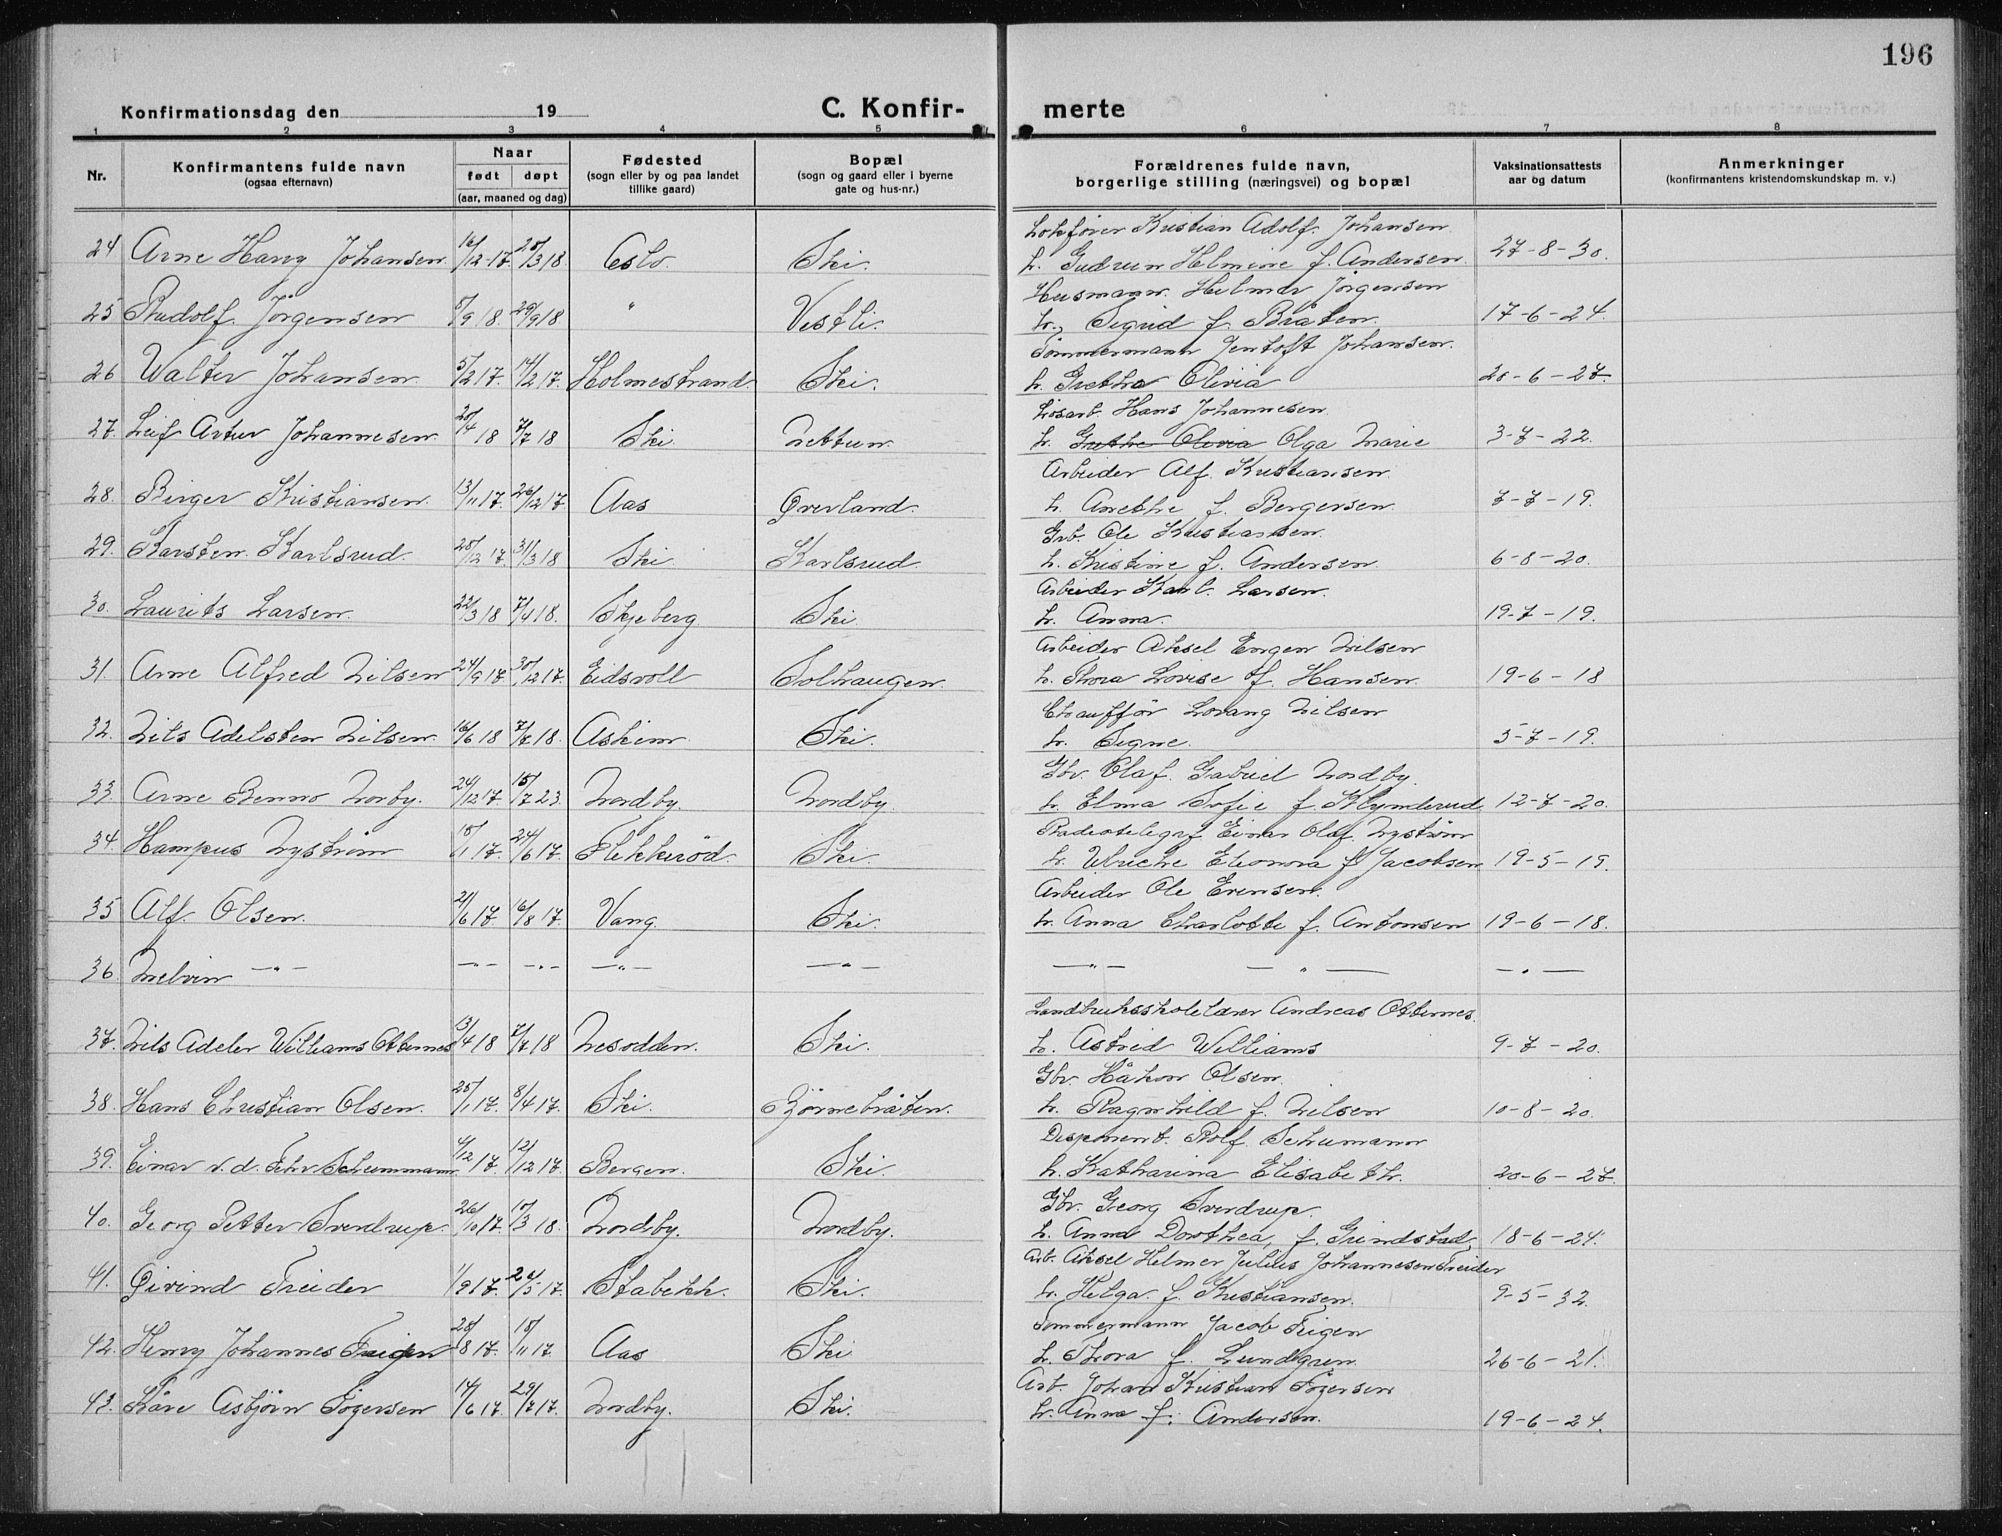 196
Konfirmationsdag den 19
C. Konfir- merte
1 2 3 4 5 6 7 8
Nr.
Konfirmantens fulde navn
(ogsaa efternavn)
Naar
født døpt
(aar, maaned og dag)
Fødested
(sogn eller by og paa landet
tillike gaard)
Bopæl
(sogn og gaard eller i byerne
gate og hus-nr.)
Forældrenes fulde navn,
borgerlige stilling (næringsvei) og bopæl
Vaksinationsattests
aar og datum
Anmerkninger
(konfirmantens kristendomskundskap m. v.)
Lokfører Kristian Adolf Johansen
24 Arne Harry Johansen 16/12-17. 20/3 18. Oslo. Ski. h. Gudrun Helmine f. Andersen. 27-8-30.
Husmann. Helmer Jörgensen
25 Rudolf. Jörgensen 5/9 18. 29/9 18 " Vestli. h., Sigrid f. Bråten. 17-6-24.
Tömmermann Jentoft Johansen.
26 Walter Johansen 5/2 17. 14/2 17. Holmestrand. Ski. h. Grethe Olivia 20-6-27.
Lösarb. Hans Johannesen.
27. Leif Artur Johannesen. 20/4 18 7/7 18 Ski. Nettum. h. Grethe Olivia Olga Marie 3-7-22.
Arbeider Alf. Kristiansen.
28. Birger Kristiansen. 13/11 17. 26/12 17 Aas Överland. h. Anethe f. Bergersen. 7-7-19.
Grb. Ole Kristiansen.
29. Karsten Karlsrud. 20/12 17. 31/3 18 Ski. Karlsrud. h. Kristine f. Andersen. 6-8-20.
Arbeider Karl. Larsen.
30. Laurits Larsen. 22/3 18 7/4 18. Skjeberg Ski. h. Anna. 19-7-19.
Arbeider Aksel Eugen Nilsen
31. Arne Alfred Nilsen 24/9 17 30/12 17. Eidsvoll Solhaugen. h. Thora Lovise f. Hansen. 19-6-18
Chauffør Lorang Nilsen
32. Nils Adelsten Nilsen. 16/6 18 7/7 18. Askim. Ski. h. Signe. 5-7-19.
Gbr. Olaf. Gabriel Nordby.
33. Arne Benno Norby. 24/12 17. 15/7 23. Nordby. Nordby. h. Elma Sofie f. Klynderud 12-7-20.
Radiotelegrf Einar Olaf. Nyström
34. Hampus Nyström 10/1 17. 24/6 17. Flekkeröd. Ski. h. Ulricke Eleonora f Jacobsen 19-5-19.
Arbeider Ole Evensen.
35 Alf. Olsen. 21/6 17. 16/8 17. Vang. Ski. h. Anna Charlotte f. Antonsen 19-6-18.
36. Melvin —"— —"— —"— —"— —"— —"— — " — —"—
Landbruksskolelærer Andreas Otternes.
37. Nils Adeler Williams Otternes 13/4 18 7/7 18 Nesodden. Ski. h. Astrid Williams 9-7-20.
Gbr. Håkon Olsen.
38. Hans Christian Olsen. 25/1 17. 8/4 17. Ski. Björnebråten. h. Ragnhild f. Nilsen 10-8-20.
Disponent. Rolf. Schumann
39. Einar v.d. Fehr Schummann 4/12 17. 12/12 17. Bergen. Ski. h. Katharina Elisabeth. 20-6-27.
Gbr. Georg Sverdrup.
40. Georg Petter Sverdrup. 26/10 17. 10/3 18. Nordby. Nordby. h. Anna Dorthea, f. Grindstad, 18-6-24.
Arb. Aksel Helmer Julius Johannesen Treider
41. Öivind Treider 1/9 17. 24/5 17. Stabekk. Ski. h. Helga f. Kristiansen. 9-5-32.
Tömmermann Jacob Teigen
42. Henry Johannes Teigen 28/8 17. 18/11 17. Aas Ski h. Thora f. Lundgren. 26-6-21.
Arb. Johan Kristian Tögersen
43. Kåre Asbjörn Tögersen 14/6 17. 29/7 17. Nordby. Ski. h. Anna f. Andersen. 19-6-24.